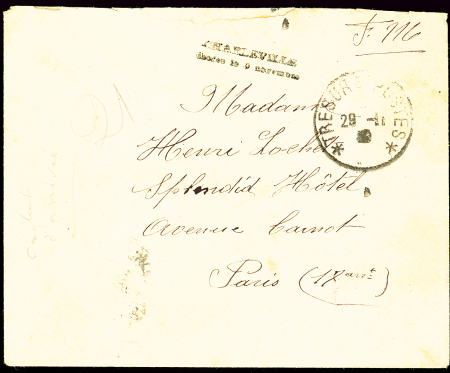 F. M
CHARLEVILLE
libérée le 9 novembre
TRESOR ET POSTES
29 11
Madame
Henri Loche
Splendid Hôtel
Avenue Carnot
Paris (17 arrt)